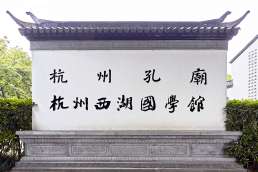 杭州孔廟
杭州西湖國學館